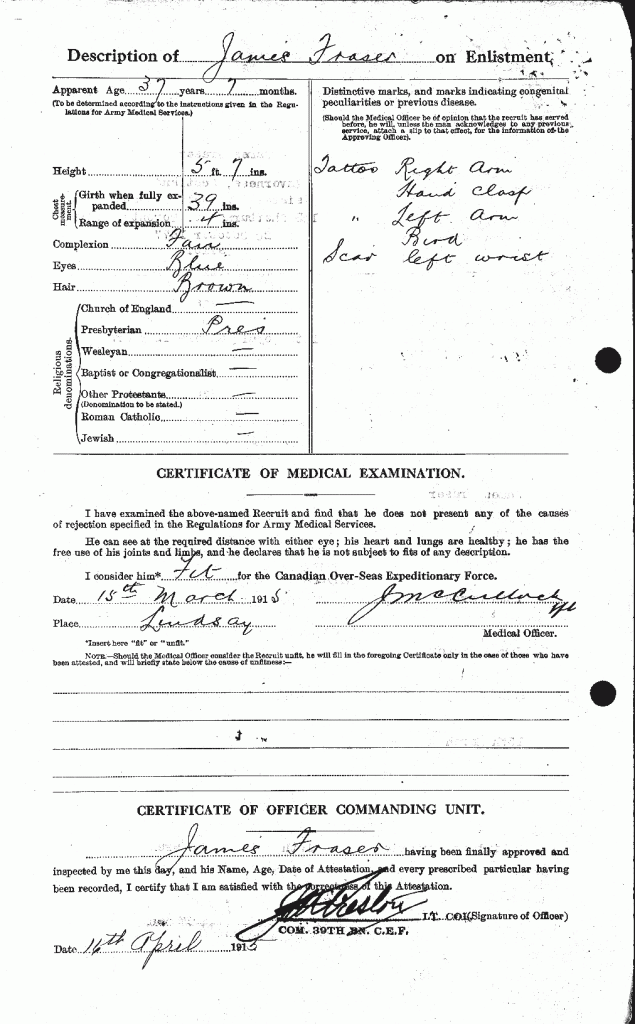 Description of James Fraser on Enlistment.
Apparent Age 37 years 7 months.
(To be determined according to the instructions given in the Regulations for Army Medical Services.)
Height 5 ft. 7 ins.
Chest measurement.
Girth when fully expanded 39 ins.
Range of expansion 4 ins.
Complexion Fair
Eyes Blue
Hair Brown
Religious denominations.
Church of England —
Presbyterian Pres
Wesleyan —
Baptist or Congregationalist —
Other Protestants —
(Denomination to be stated.)
Roman Catholic —
Jewish —
Distinctive marks, and marks indicating congenital
peculiarities or previous disease.
(Should the Medical Officer be of opinion that the recruit has served
before, he will, unless the man acknowledges to any previous
service, attach a slip to that effect, for the information of the
Approving Officer).
Tattoo Right Arm
Hand Clasp
" Left Arm
Bird
Scar left wrist
CERTIFICATE OF MEDICAL EXAMINATION.
I have examined the above-named Recruit and find that he does not present any of the causes
of rejection specified in the Regulations for Army Medical Services.
He can see at the required distance with either eye; his heart and lungs are healthy; he has the
free use of his joints and limbs, and he declares that he is not subject to fits of any description.
I consider him* Fit for the Canadian Over-Seas Expeditionary Force.
Date 15th March 1915
J McCulloch
Place Lindsay
Medical Officer.
*Insert here "fit" or "unfit."
NOTE.—Should the Medical Officer consider the Recruit unfit, he will fill in the foregoing Certificate only in the case of those who have
been attested, and will briefly state below the cause of unfitness:—
CERTIFICATE OF OFFICER COMMANDING UNIT.
James Fraser having been finally approved and
inspected by me this day, and his Name, Age, Date of Attestation, and every prescribed particular having
been recorded, I certify that I am satisfied with the correctness of this Attestation.
J A Preston LT. COL (Signature of Officer)
COM. 39TH BN. C.E.F.
Date 16th April 1915